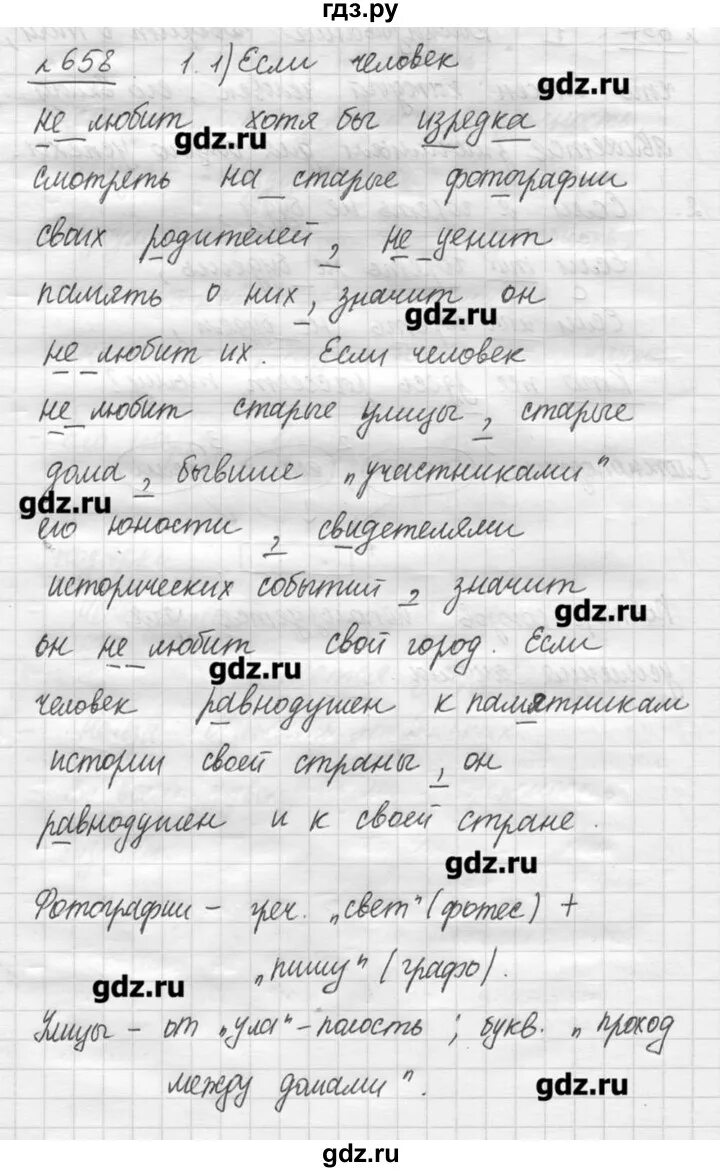 гдз.ру
№658 1. 1) Если человек
gdz.ru
не любит хотя бы изредка
gdz.ru
смотреть на старые фотографии
своих родителей, не ценит
память о них, значит он
gdz.ru
не любит их. Если человек
не любит старые улицы, старые
дома, бывшие „участниками"
gdz.ru
его юности, свидетелями
исторических событий, значит
gdz.ru
он не любит свой город. Если
gdz.ru
человек равнодушен к памятникам
истории своей страны, он
равнодушен и к своей стране.
gdz.ru
Фотографии - греч. „свет" (фотес) +
„пишу" (графо).
gdz.ru
Улицы - от „ула" - полость; букв. „проход
между домами".
gdz.ru
gdz.ru